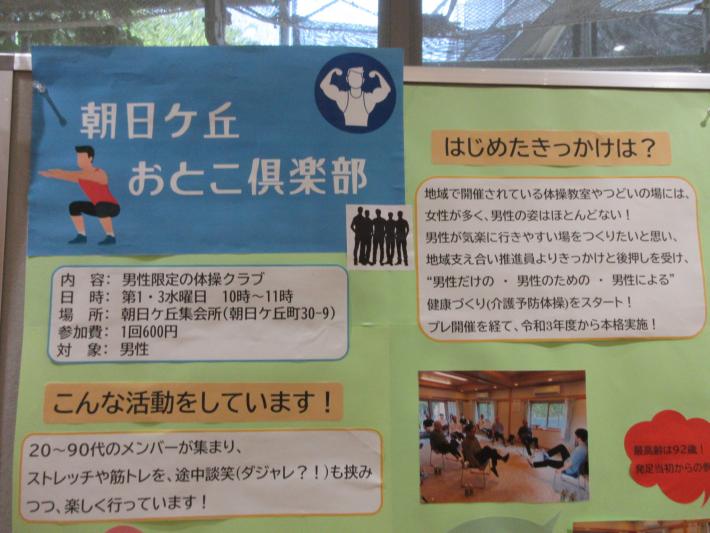 朝日ケ丘
おとこ倶楽部
内　容： 男性限定の体操クラブ
日　時： 第1・3水曜日　10時～11時
場　所： 朝日ケ丘集会所(朝日ケ丘町30-9)
参加費： 1回600円
対　象： 男性
こんな活動をしています！
20～90代のメンバーが集まり、
ストレッチや筋トレを、途中談笑(ダジャレ？！)も挟み
つつ、楽しく行っています！
はじめたきっかけは？
地域で開催されている体操教室やつどいの場には、
女性が多く、男性の姿はほとんどない！
男性が気楽に行きやすい場をつくりたいと思い、
地域支え合い推進員よりきっかけと後押しを受け、
“男性だけの ・ 男性のための ・ 男性による”
健康づくり(介護予防体操)をスタート！
プレ開催を経て、令和3年度から本格実施！
最高齢は92歳！
発足当初からの